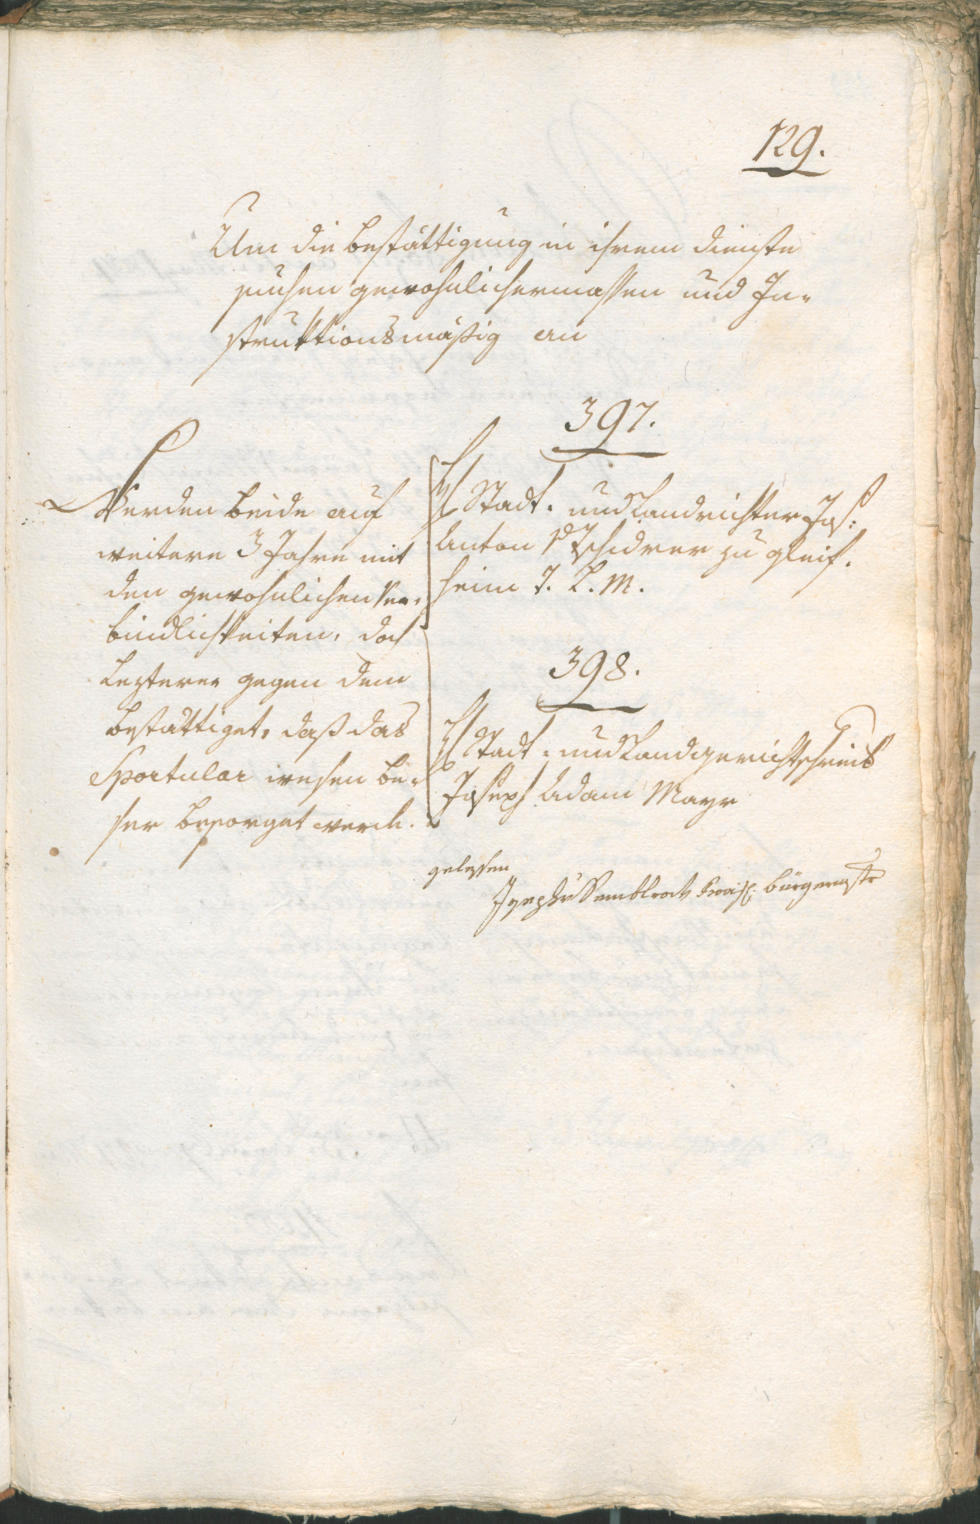 129.
Um die Bestättigung in ihrem Dienste
suchen gewohnlichermassen und In-
struktionsmäßig an
397.
H Stadt- und Landrichter Jos:
Anton v Tschidrer zu Gleif-
heim J. L. M.
398.
H Stadt- und Landgerichtschreib
Joseph Adam Mayr
Werden beide auf
weitere 3 Jahre mit
den gewohnlichen Ver-
bindlichkeiten, doch
Lezterer gegen dem
bestättiget, daß das
Sportular wesen be-
ßer besorget werde.
gelesen
Joseph v bürgermstr